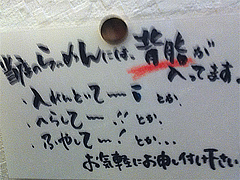 当店のらーめんには、背脂が
入ってます。
・入れんといてー！とか、
・へらしてー！！とか、
・ふやしてー！とか…
お気軽にお申し付け下さい